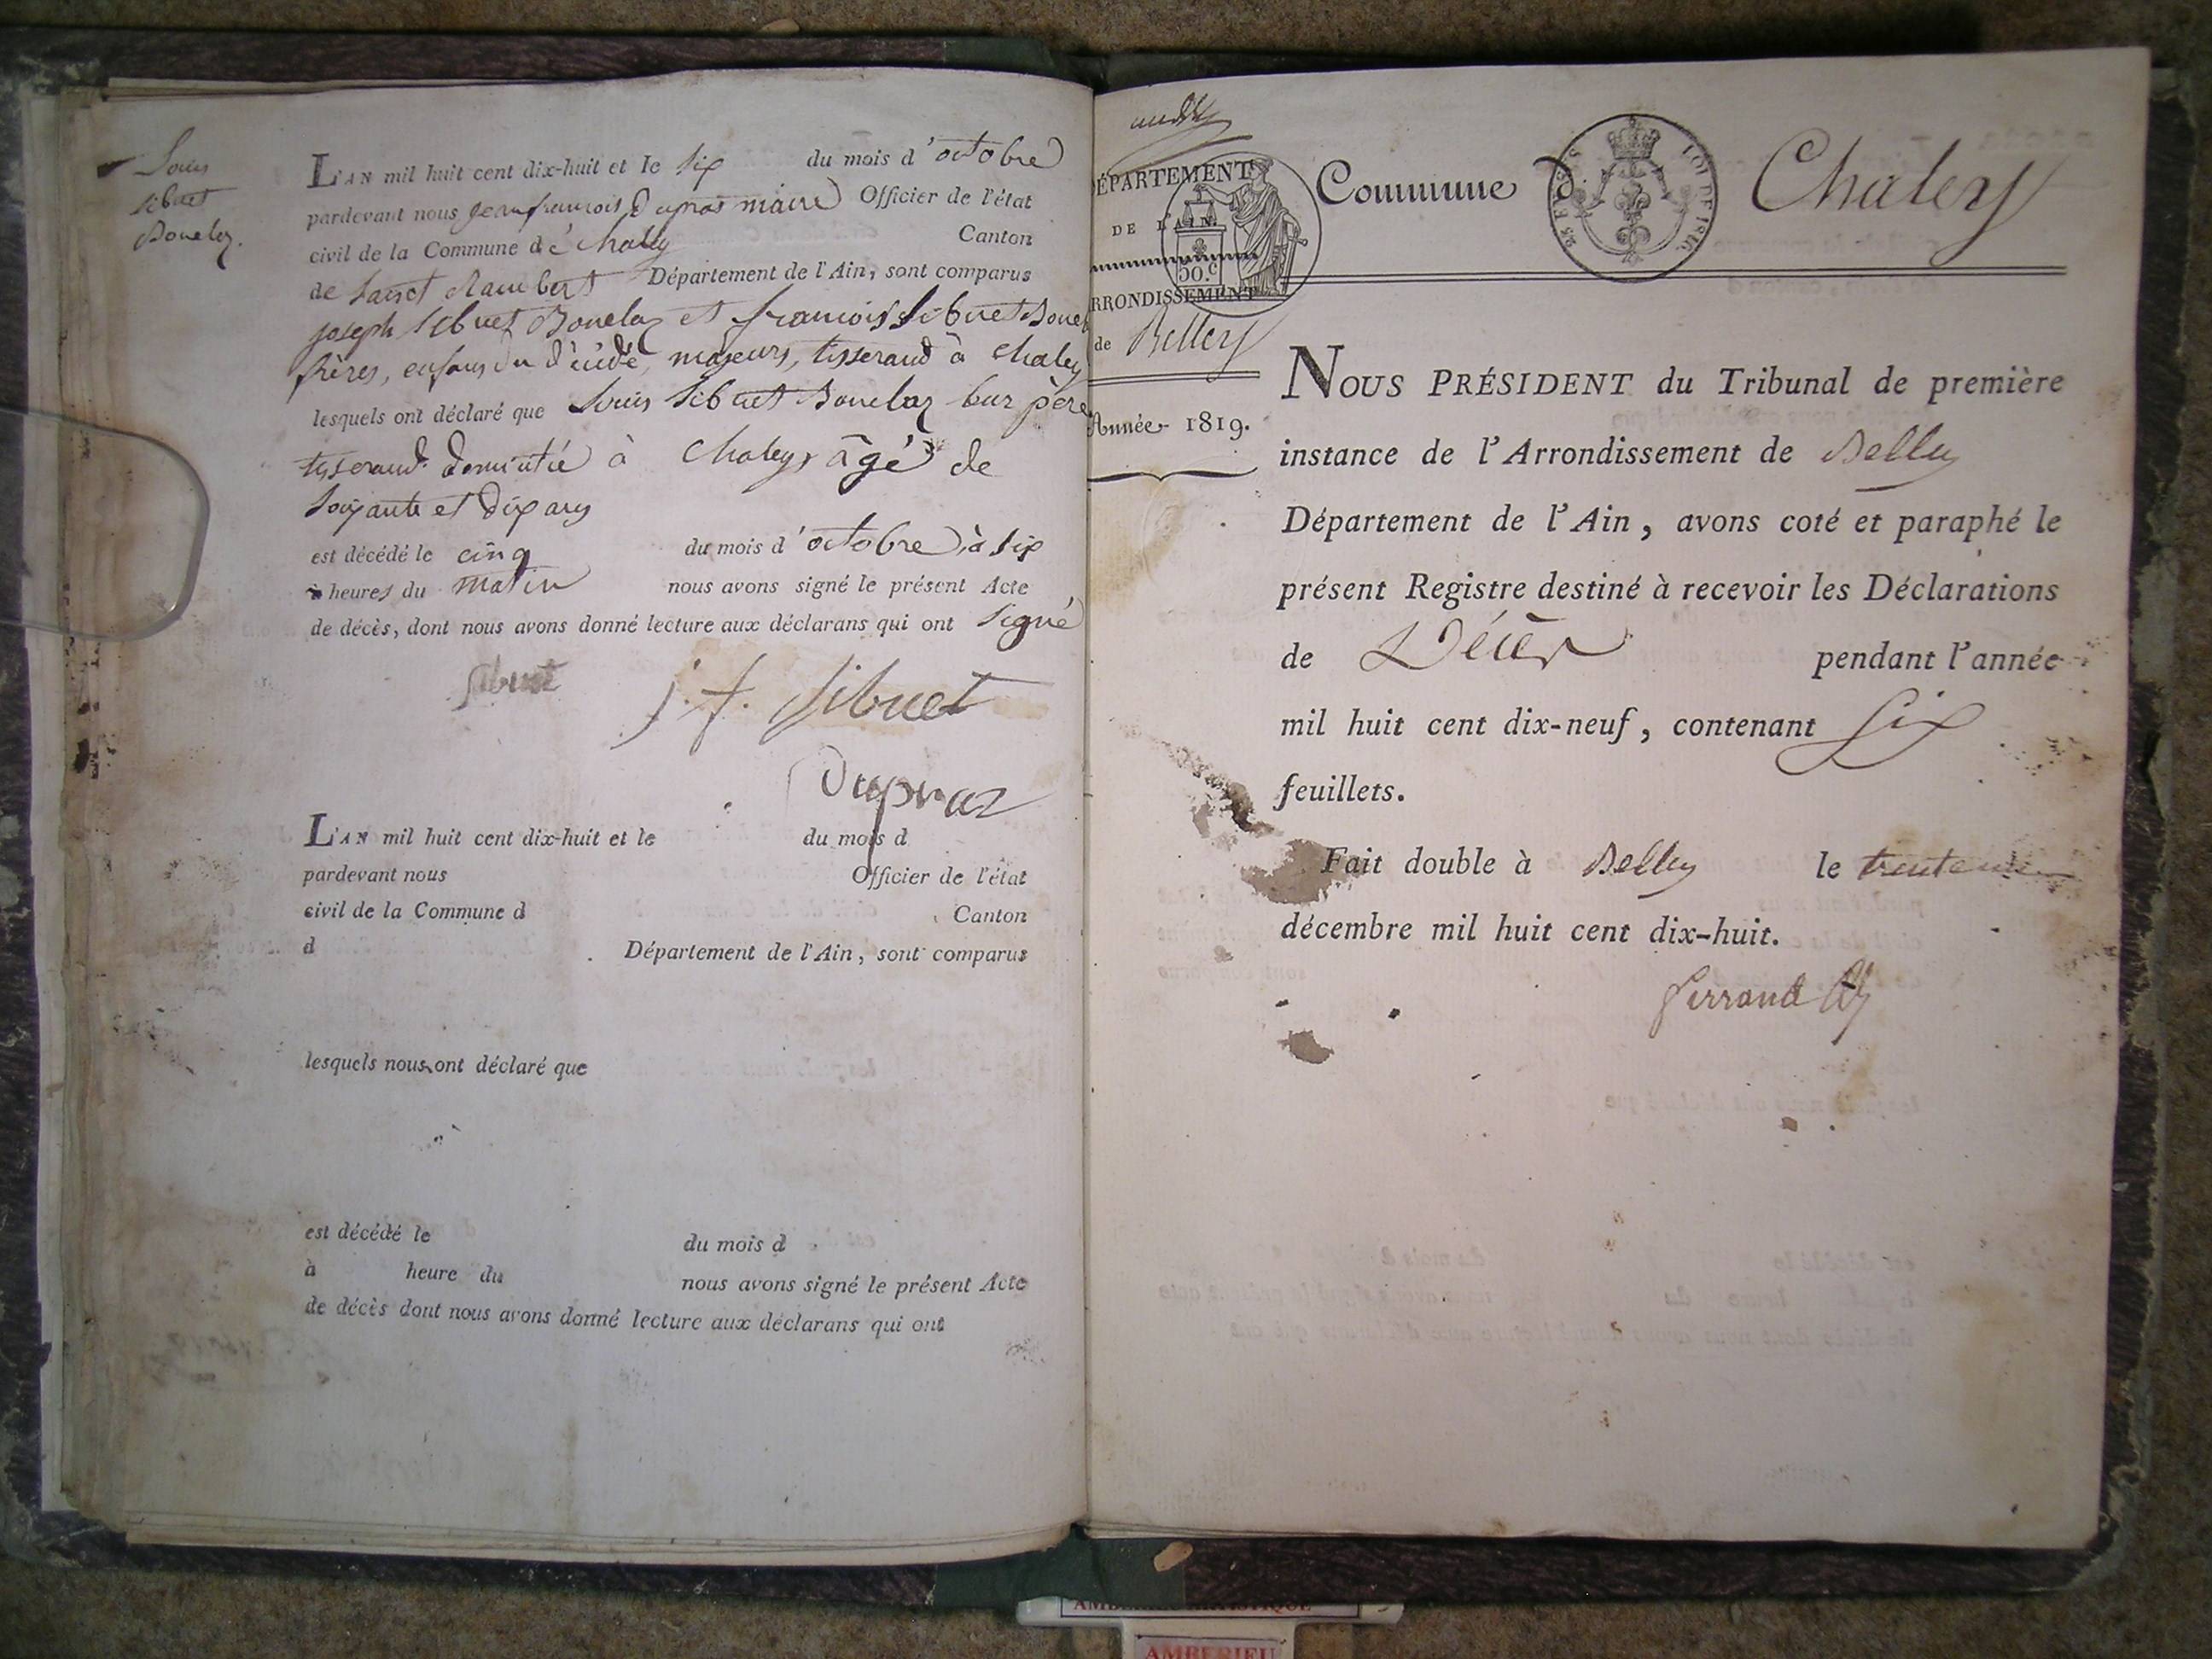 Louis
Sibuet
Bouclaz.
L'AN mil huit cent dix-huit et le six du mois d'octobre
pardevant nous jean françois Dupraz maire Officier de l'état
civil de la Commune de Chaley Canton
de Sainct Rambert Département de l'Ain, sont comparus
joseph Sibuet Bouclaz et françois Sibuet Boucl
frères, enfans du décédé, majeurs, tisserand à Chaley
lesquels ont déclaré que Louis Sibuet Bouclaz leur père
tisserand domicilié à Chaley, âgé de
soixante et dix ans
est décédé le cinq du mois d'octobre, à six
à heures du matin nous avons signé le présent Acte
de décès, dont nous avons donné lecture aux déclarans qui ont signé
Sibuet j. f. Sibuet
Dupraz
L'AN mil huit cent dix-huit et le du mois d
pardevant nous Officier de l'état
civil de la Commune d Canton
d Département de l'Ain, sont comparus
lesquels nous ont déclaré que
est décédé le du mois d
à heure du nous avons signé le présent Acte
de décès dont nous avons donné lecture aux déclarans qui ont
DÉPARTEMENT
DE L'AIN.
50.c
ARRONDISSEMENT
de Belley
Année 1819.
Commune d Chaley
LOI DE 1816.
NOUS PRÉSIDENT du Tribunal de première
instance de l'Arrondissement de Belley
Département de l'Ain, avons coté et paraphé le
présent Registre destiné à recevoir les Déclarations
de Décès pendant l'année
mil huit cent dix-neuf, contenant six
feuillets.
Fait double à Belley le trente un
décembre mil huit cent dix-huit.
AMBERIEU